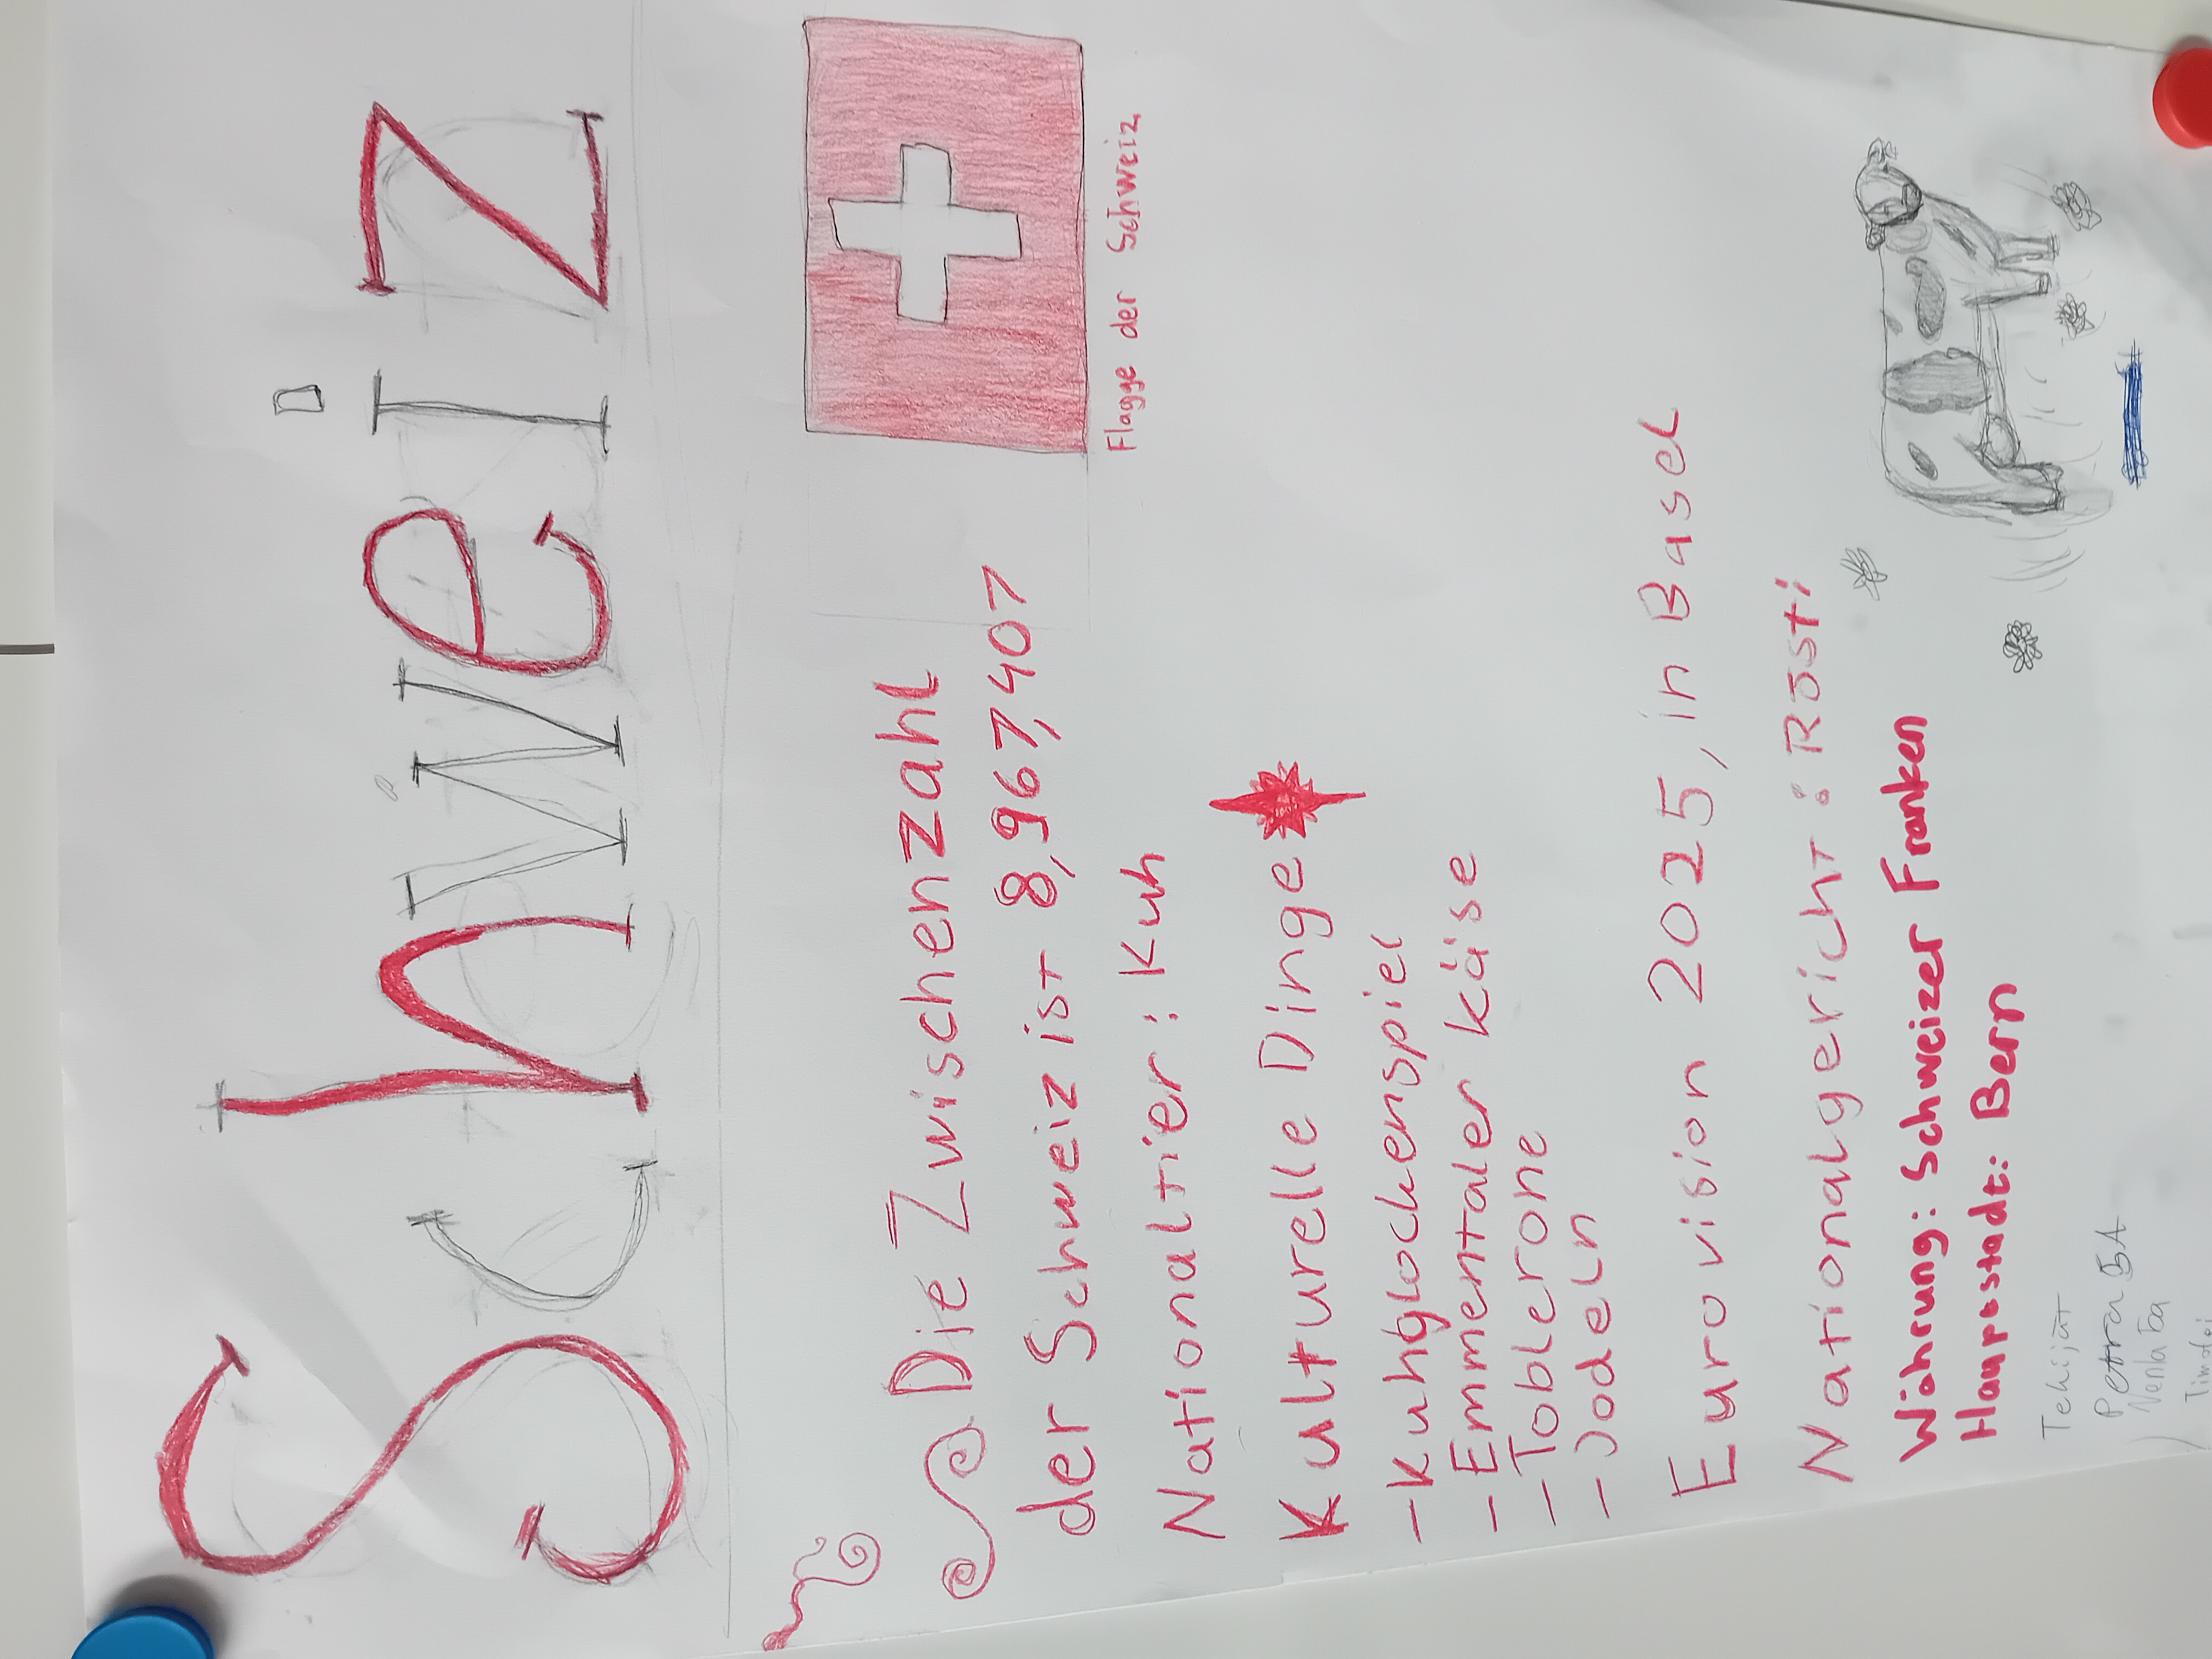 Schweiz
Die Zwischenzahl
der Schweiz ist 8,967,407
Flagge der Schweiz
Nationaltier: Kuh
Kulturelle Dinge
-Kuhglockenspiel
-Emmentaler käse
-Toblerone
-Jodeln
Eurovision 2025, in Basel
Nationalgericht: Rösti
Währung: Schweizer Franken
Hauptstadt: Bern
Tekijät
Petra 5A
Timofei